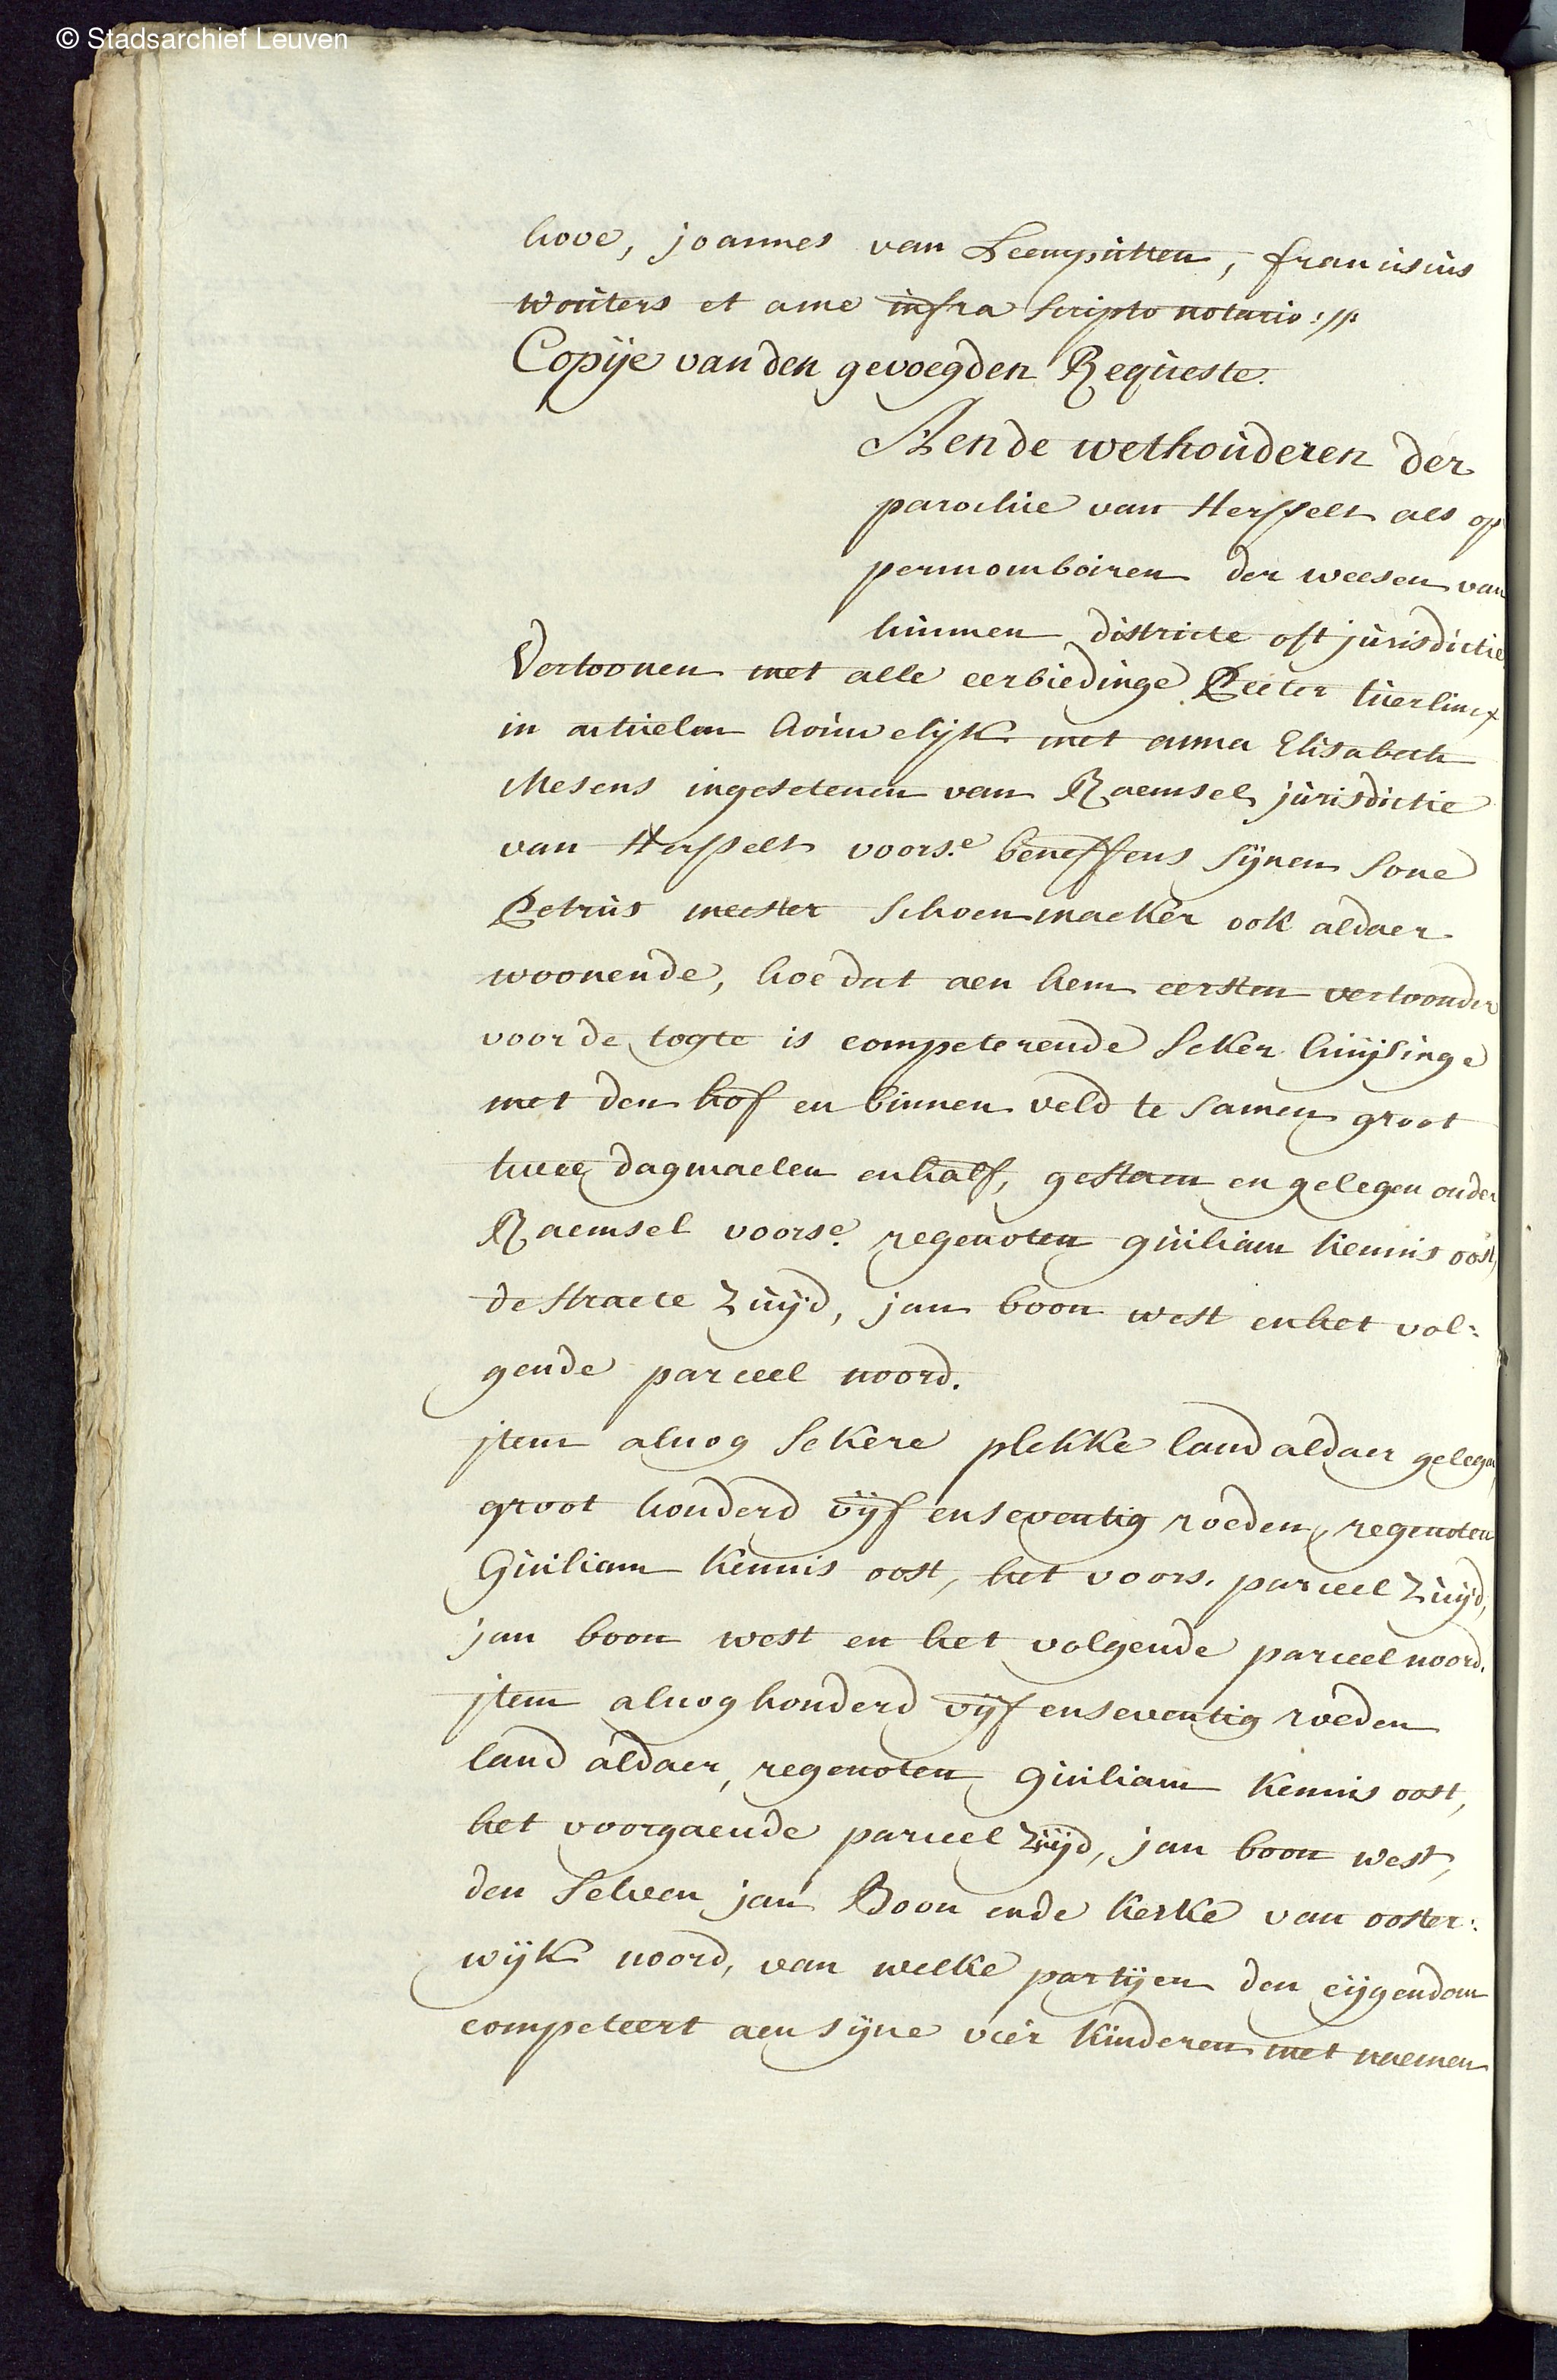 © Stadsarchief Leuven
hove, joannes van Leemputten, francisius
Wouters et a me infra scripto notario://:
Copije van den gevoegden Requeste.
Aen de wethouderen der
parochie van Hersselt als op
permomboiren der weesen van
hunnen districte oft jurisdictie
Vertoonen met alle eerbiedinge Peeter tuerlincx
in actuelen houwelijk met anna Elisabeth
Mesens ingesetenen van Raemsel jurisdictie
van Hersselt voors.e beneffens sijnen sone
Petrus meester schoenmaeker ook aldaer
woonende, hoe dat aen hem eersten vertoonder
voor de togte is competerende seker huijsinge
met den hof en binnen veld te samen groot
twee dagmaelen en half, gestaen en gelegen onder
Raemsel voorse. regenoten guiliam kennis oost,
de straete Zuijd, jan boon west en het vol:
gende parceel noord.
jtem alnog sekere plekke land aldaer gelegen
groot honderd vijf en seventig roeden, regenoten
Guiliam kennis oost, het voors. parceel Zuijd,
jan boon west en het volgende parceel noord.
jtem alnog honderd vijf en seventig roeden
land aldaer, regenoten guiliam kennis oost,
het voorgaende parceel Zuijd, jan boon west,
den selven jan Boon ende kerke van ooster:
wijk noord, van welke partijen den eijgendom
competeert aen sijne vier kinderen met naemen